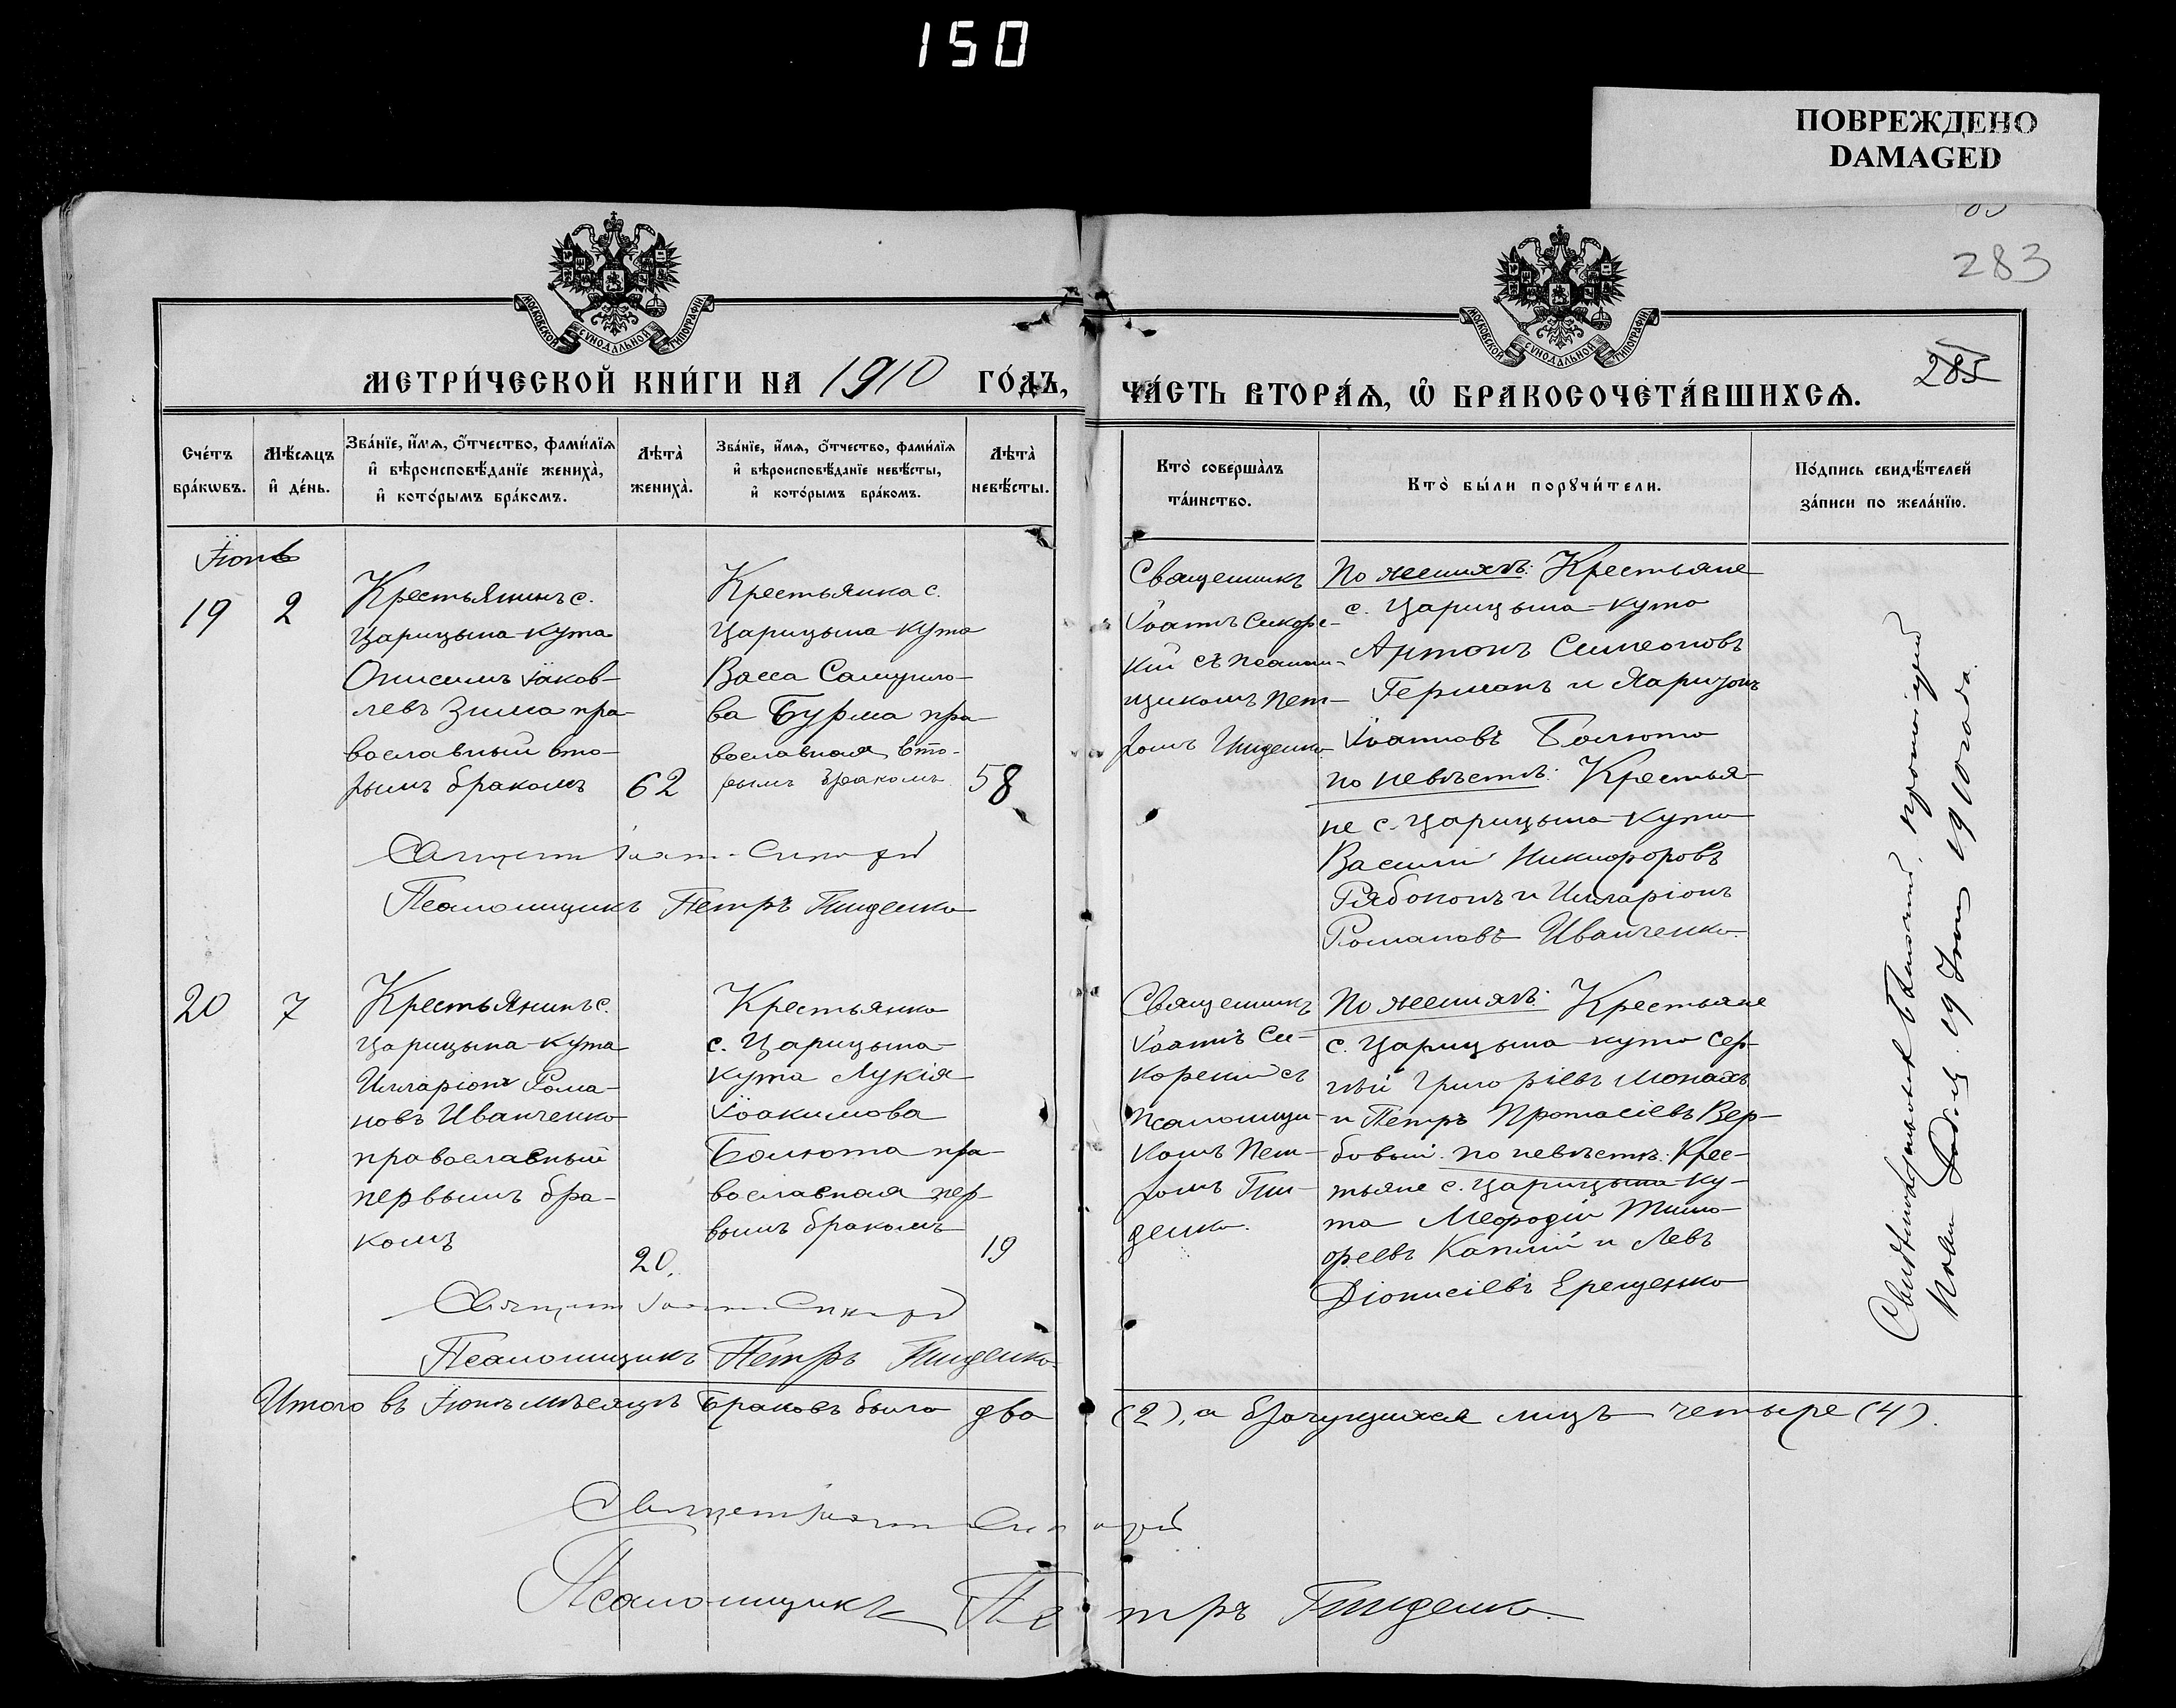 150
ПОВРЕЖДЕНО
DAMAGED
283
285
МОСКОВСКОЙ СѴНОДАЛЬНОЙ ТИПОГРАФІИ
МОСКОВСКОЙ СѴНОДАЛЬНОЙ ТИПОГРАФІИ
МЕТРИ́ЧЕСКОЙ КНИ́ГИ НА 1910 ГО́ДЪ,
ЧА́СТЬ ВТОРА́Я, Ѿ БРАКОСОЧЕТА́ВШИХСЯ.
Сче́тъ
бра́кѡвъ.
Мѣ́сяцъ
и҆ де́нь.
Зва́нїе, и҆́мя, ѻ҆́тчество, фами́лїя
и҆ вѣроисповѣ́данїе жениха̀,
и҆ кото́рымъ бра́комъ.
Лѣта̀
жениха̀.
Зва́нїе, и҆́мя, ѻ҆́тчество, фами́лїя
и҆ вѣроисповѣ́данїе невѣ́сты,
и҆ кото́рымъ бра́комъ.
Лѣта̀
невѣ́сты.
Кто̀ соверша̀лъ
та́инство.
Кто̀ бы́ли порꙋчи́тели.
По́дпись свидѣ́телей
за́писи по жела́нїю.
Іюнь
19
2
Крестьянинъ с.
Царицына-Кута
Онисимъ Іаков-
левъ Зима пра-
вославный вто-
рымъ бракомъ
62
Крестьянка с.
Царицына-Кута
Васса Самуило-
ва Бурма пра-
вославная вто-
рымъ бракомъ
58
Священникъ
Іоаннъ Сикорс-
кій съ псалом-
щикомъ Пет-
ромъ Гниденко
По женихѣ: Крестьяне
с. Царицына-Кута
Антонъ Симеоновъ
Германъ и Харитонъ
Іоанновъ Болюта
по невѣстѣ: Крестья-
не с. Царицына-Кута
Василій Никифоровъ
Рябоконъ и Илларіонъ
Романовъ Иванченко.
Псаломщикъ Петръ Гниденко
20
7
Крестьянинъ с.
Царицына-Кута
Илларіонъ Рома-
новъ Иванченко
православный
первымъ бра-
комъ
20.
Крестьянка
с. Царицына-
Кута Лукія
Іоакимова
Болюта пра-
вославная пер-
вымъ бракомъ
19
Священникъ
Іоаннъ Си-
корскій съ
псаломщи-
комъ Пет-
ромъ Гни-
денко.
По женихѣ: Крестьяне
с. Царицына-Кута Сер-
гѣй Григоріевъ Монахъ
и Петръ Протасіевъ Вер-
бовый. по невѣстѣ: Крес-
тьяне с. Царицына-Ку-
та Меѳодій Тимо-
феевъ Каптій и Левъ
Діонисіевъ Ерещенко
Псаломщикъ Петръ Гниденко.
Итого въ Іюнѣ мѣсяцѣ браковъ было два (2), а брачущихся лицъ четыре (4).
Псаломщикъ Петръ Гниденко.
19 1910 года.